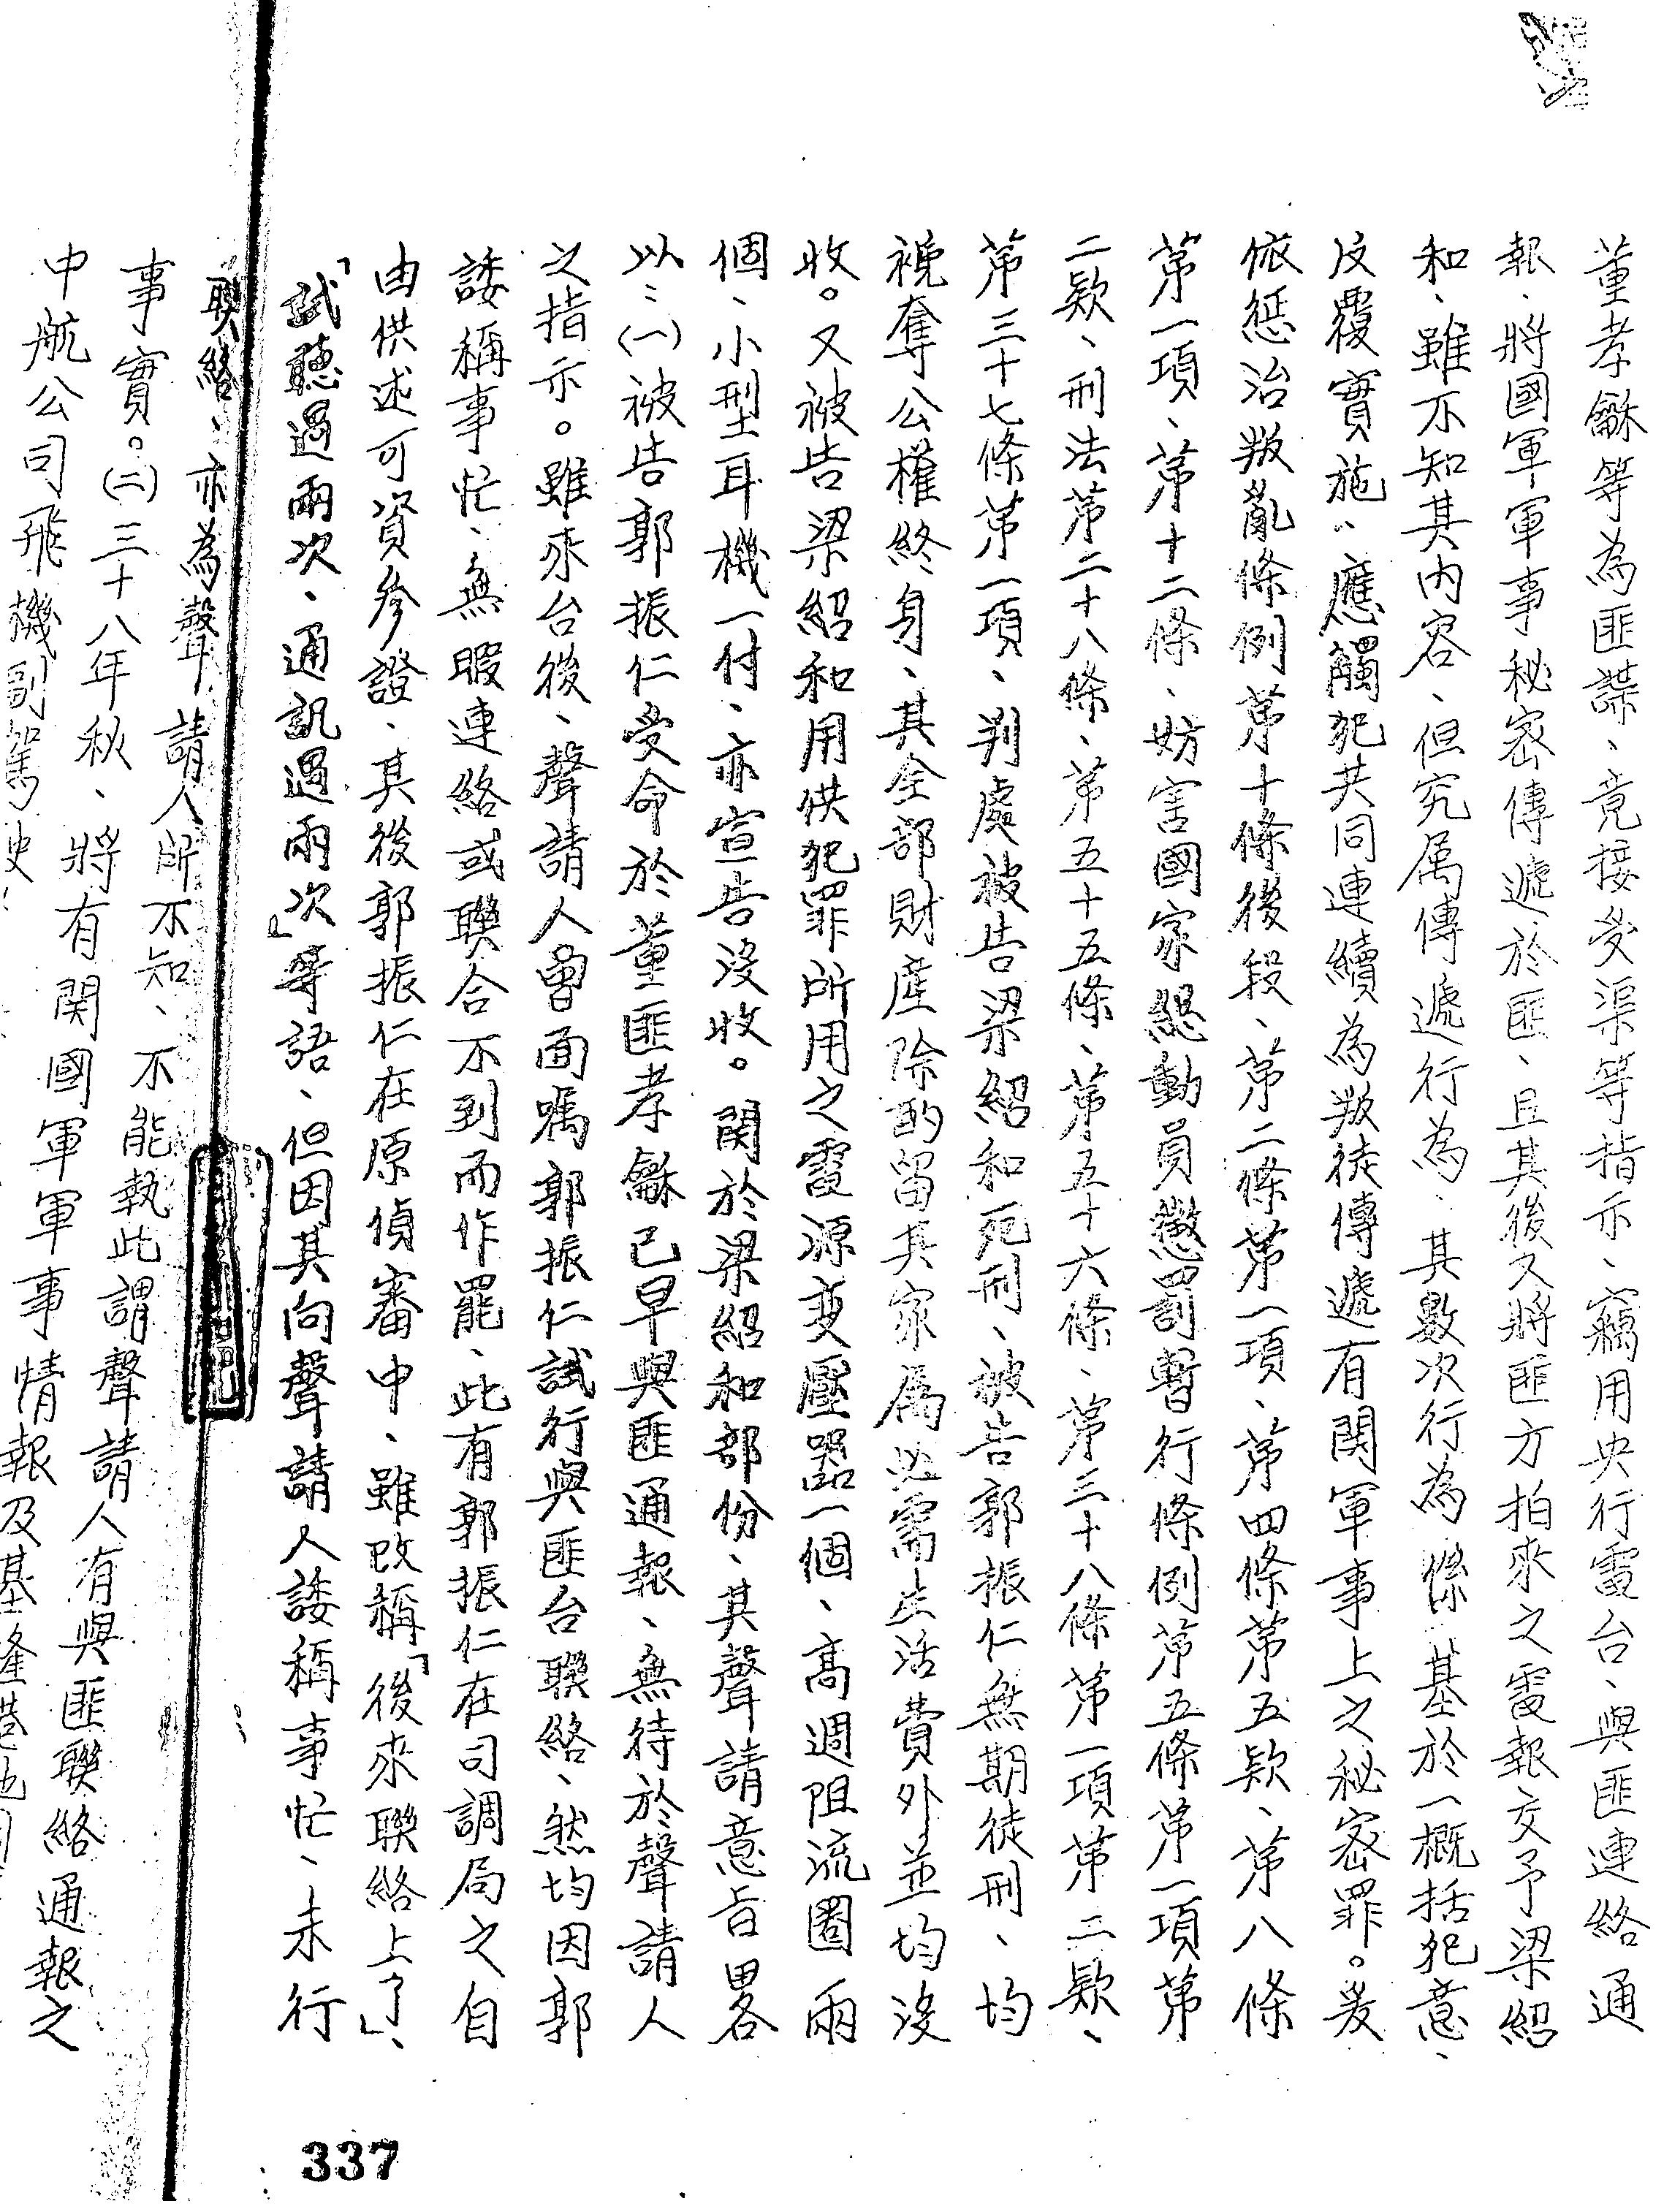 董孝龢等為匪諜、竟接受渠等指示、竊用央行電台、與匪連絡通
報、將國軍軍事秘密傳遞於匪、且其後又將匪方拍來之電報交予梁紹
和、雖不知其內容、但究属傳遞行為、其數次行為、係基於一概括犯意、
反覆實施、應觸犯共同連續為叛徒傳遞有関軍事上之秘密罪。爰
依惩治叛亂條例第十條後段、第二條第一項、第四條第五款、第八條
第一項、第十二條、妨害國家總動員懲罰暫行條例第五條第一項第
二款、刑法第二十八條、第五十五條、第五十六條、第三十八條第一項第二款、
第三十七條第一項、判處被告梁紹和死刑、被告郭振仁無期徒刑、均
褫奪公權終身、其全部財產除酌留其家属必需生活費外並均沒
收。又被告梁紹和用供犯罪所用之電源变壓器一個、高週阻流圈兩
個、小型耳機一付、亦宣告沒收。関於梁紹和部份、其聲請意旨畧
以：(一)被告郭振仁受命於董匪孝龢已早與匪通報、無待於聲請人
之指示。雖來台後、聲請人曾面嘱郭振仁試行與匪台聯絡、然均因郭
諉稱事忙、無暇連絡或聯合不到而作罷、此有郭振仁在司調局之自
由供述可資參證、其後郭振仁在原偵審中、雖改稱「後來聯絡上了」、
「試聽過兩次、通訊過兩次」等語、但因其向聲請人諉稱事忙、未行
聯絡、亦為聲請人所不知、不能執此謂聲請人有與匪聯絡通報之
事實。(二)三十八年秋、將有関國軍軍事情報及基隆港
中航公司飛機副駕駛
337